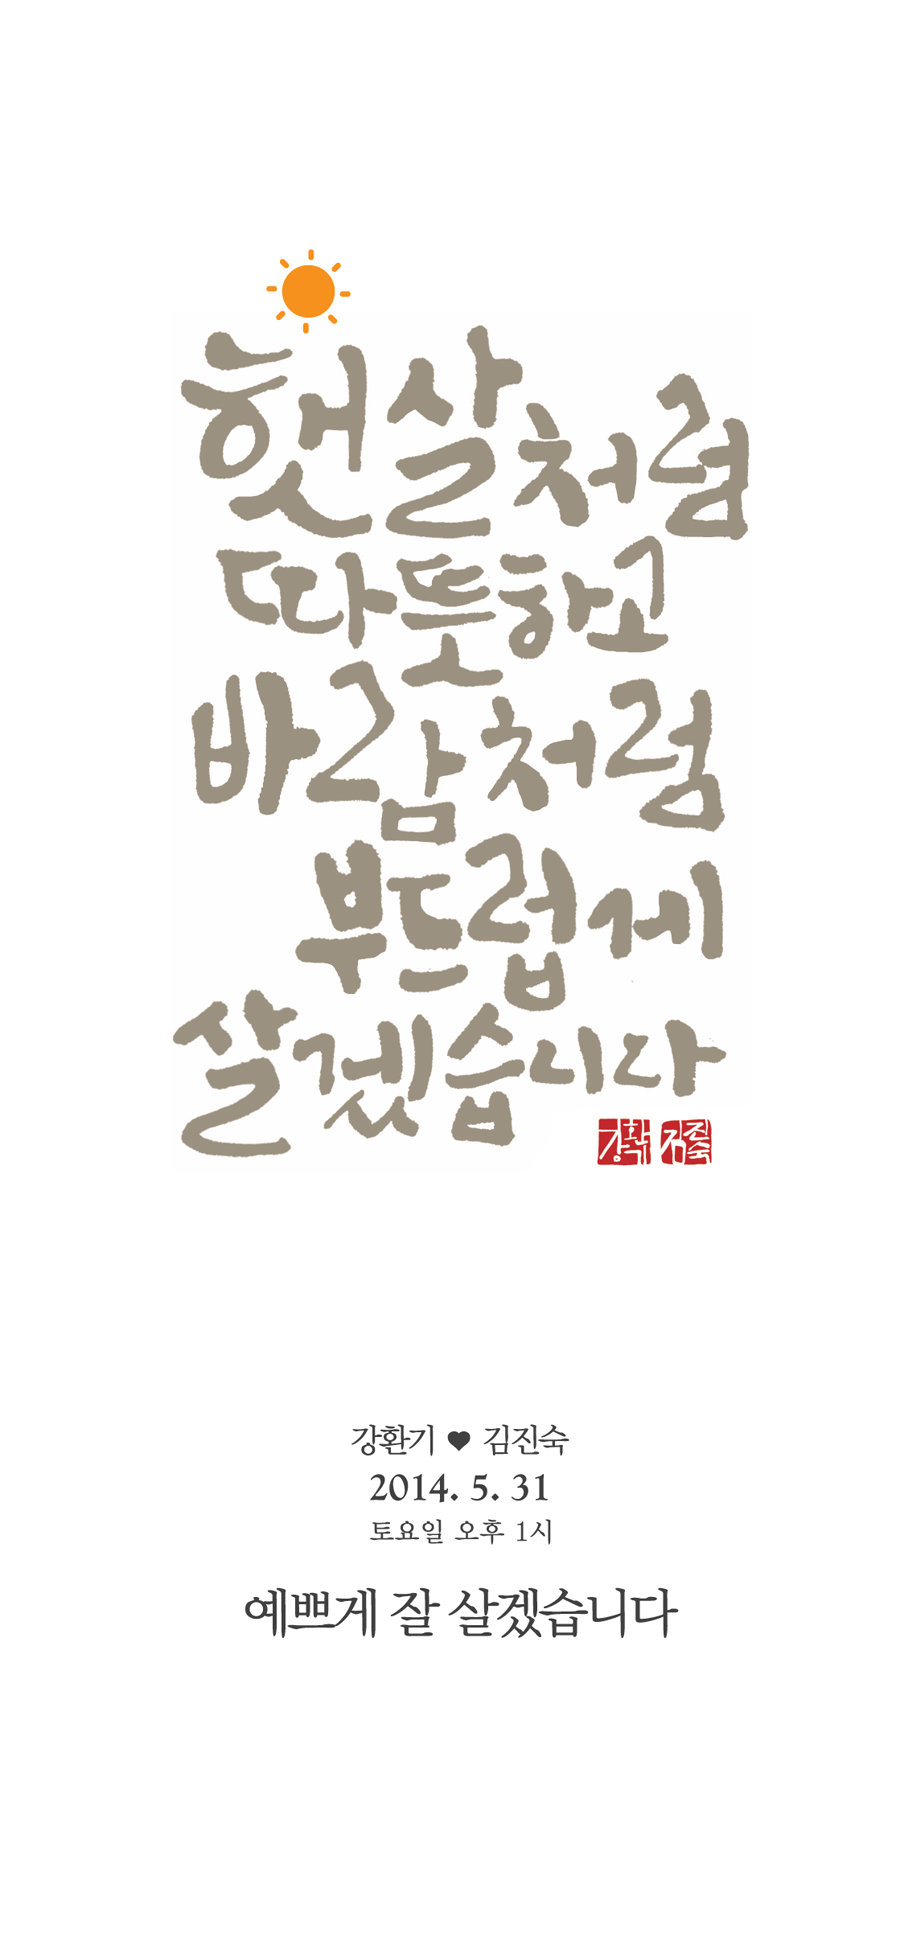 햇살처럼
따뜻하고
바람처럼
부드럽게
살겠습니다
강환기 김진숙
강환기 ♥ 김진숙
2014. 5. 31
토요일 오후 1시
예쁘게 잘 살겠습니다